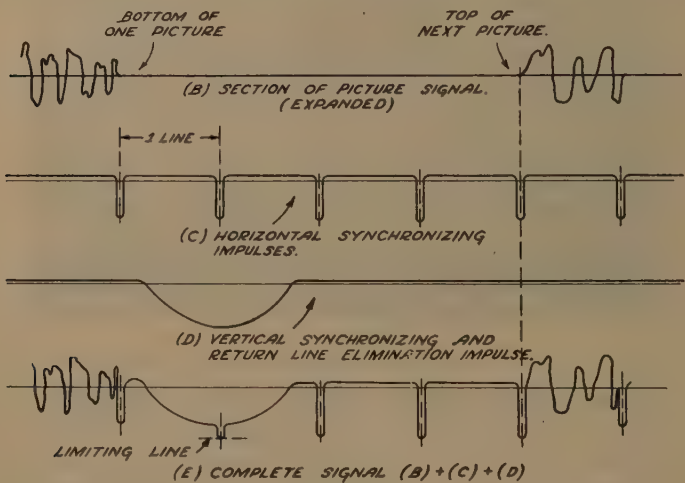 BOTTOM OF
ONE PICTURE
TOP OF
NEXT PICTURE.
(B) SECTION OF PICTURE SIGNAL.
(EXPANDED)
1 LINE
(C) HORIZONTAL SYNCHRONIZING
IMPULSES.
(D) VERTICAL SYNCHRONIZING AND
RETURN LINE ELIMINATION IMPULSE.
LIMITING LINE
(E) COMPLETE SIGNAL (B)+(C)+(D)